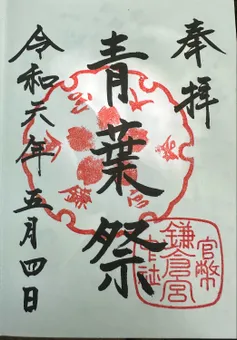 奉拝
青葉祭
令和六年五月四日
官幣
鎌倉宮
中社